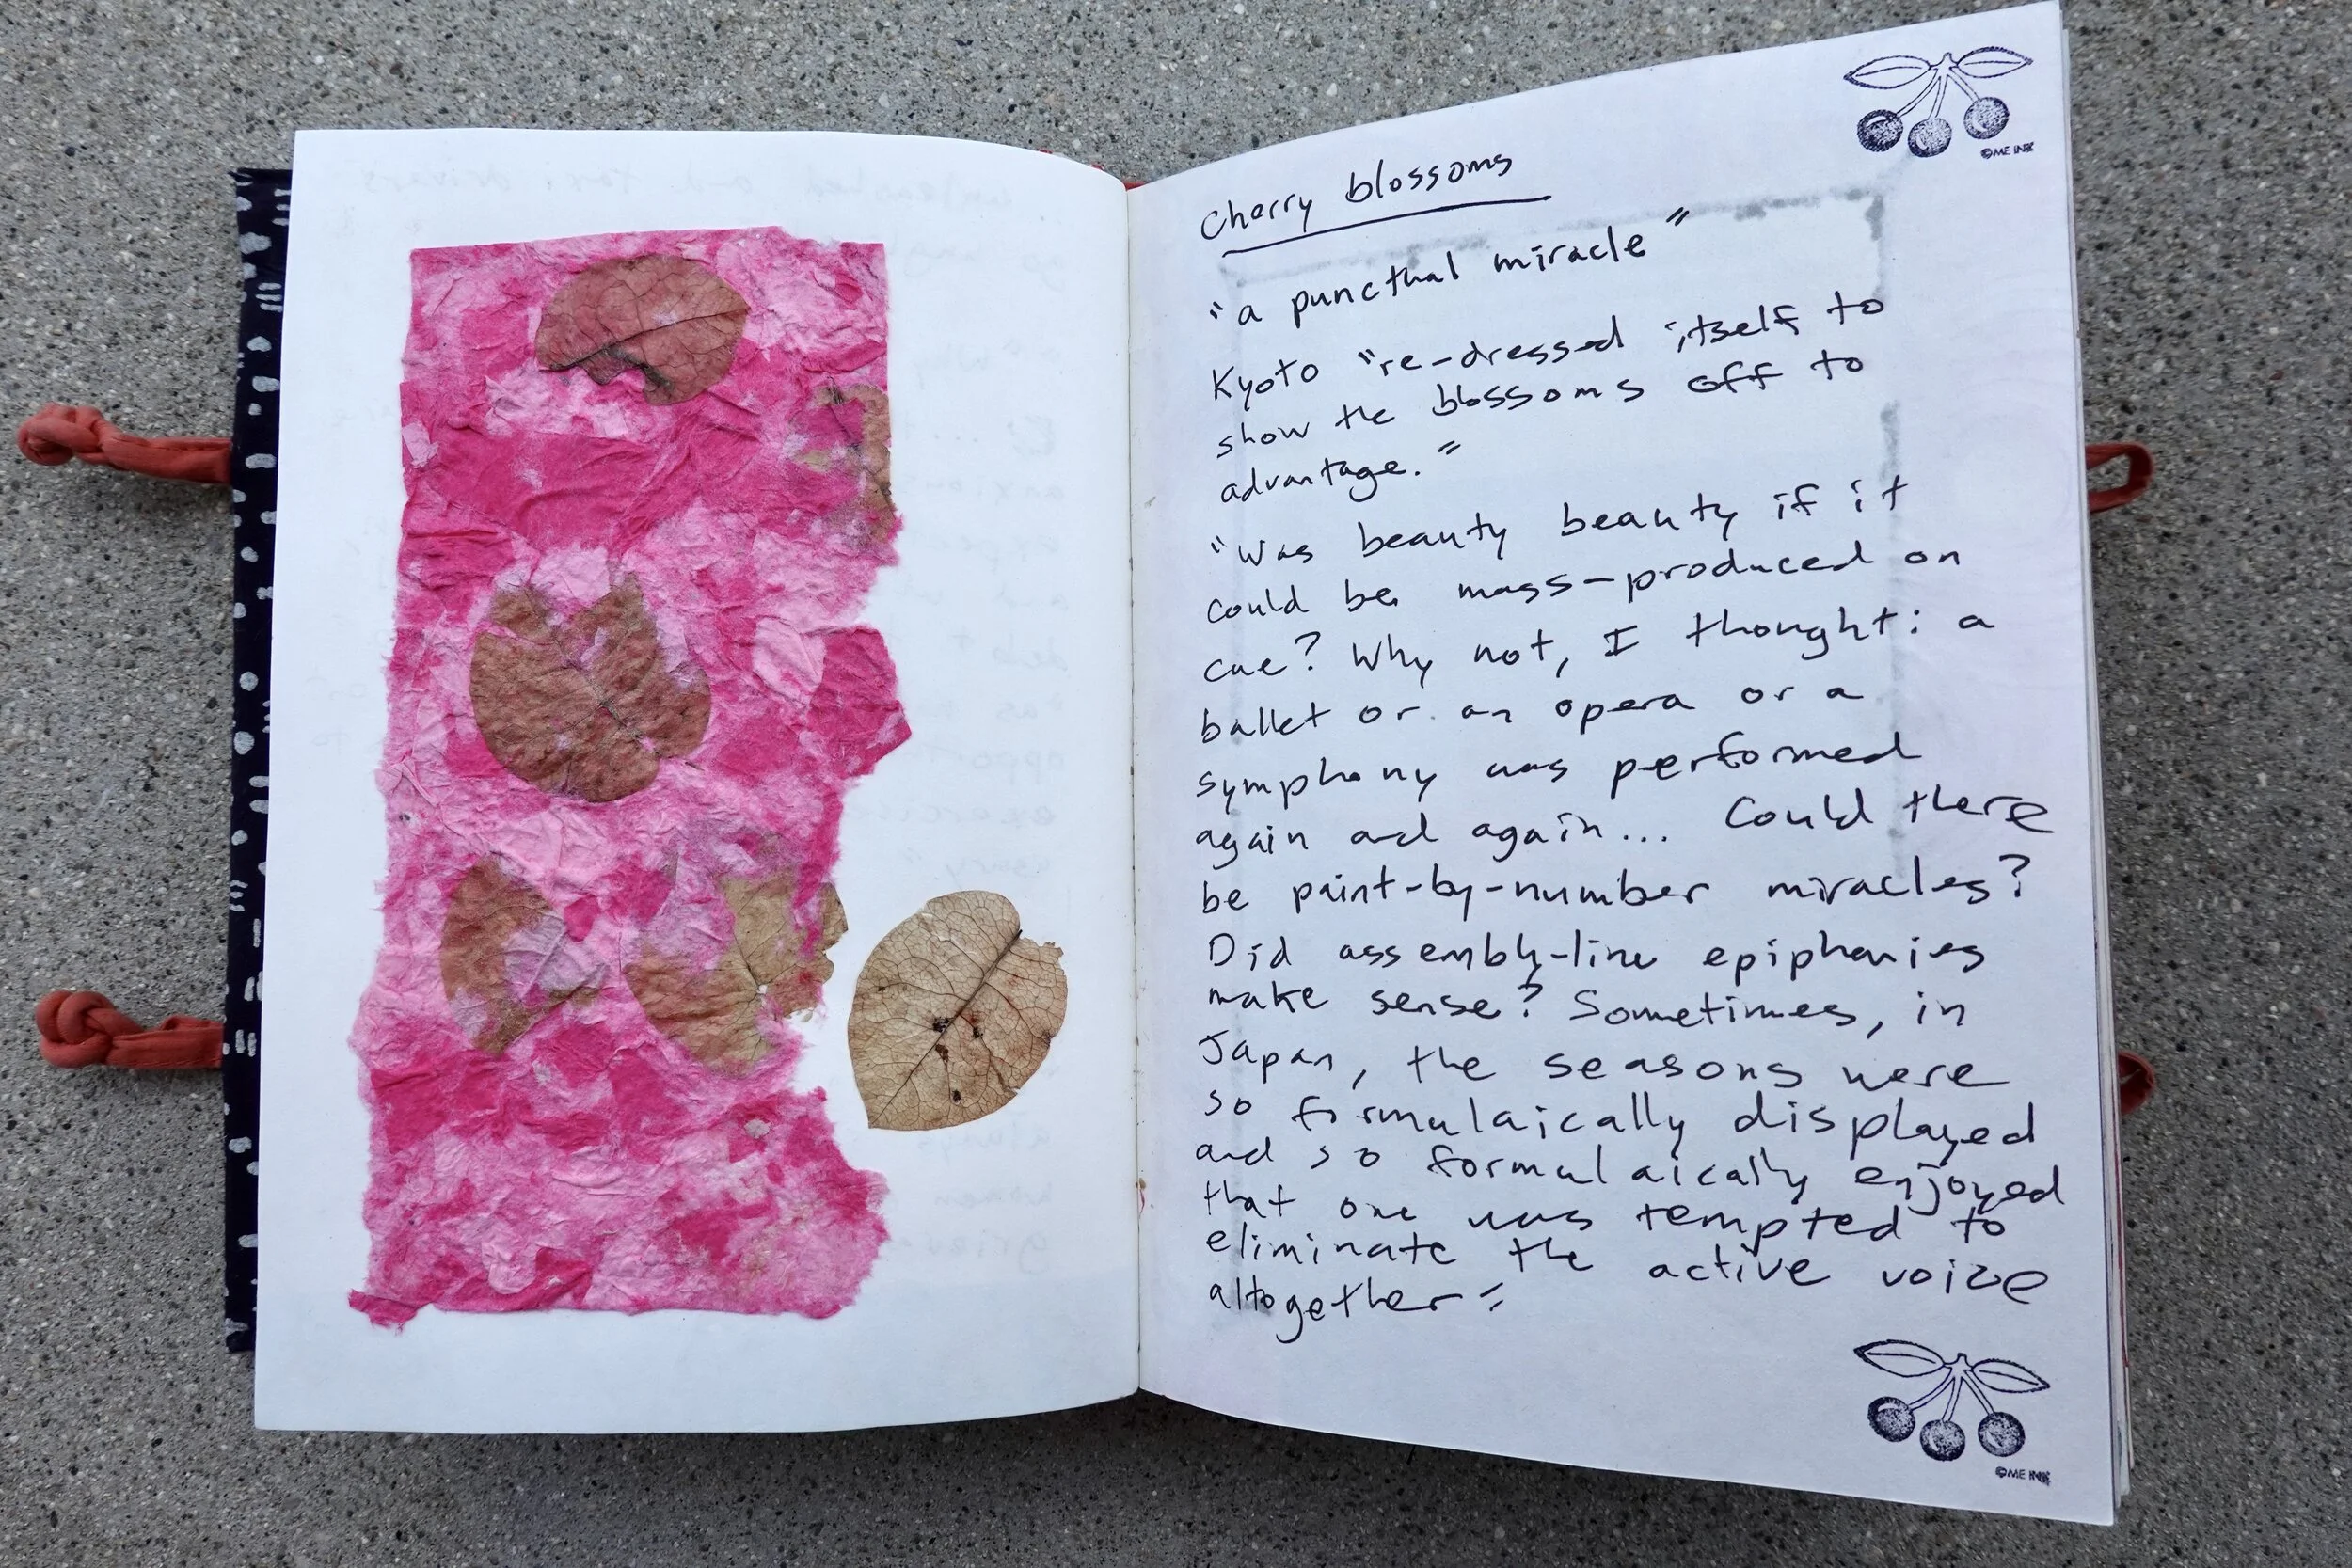 ©ME INK
Cherry blossoms
"a punctual miracle"
Kyoto "re-dressed itself to
show the blossoms off to
advantage."
"Was beauty beauty if it
could be mass-produced on
cue? Why not, I thought: a
ballet or an opera or a
symphony was performed
again and again... Could there
be paint-by-number miracles?
Did assembly-line epiphanies
make sense? Sometimes, in
Japan, the seasons were
so formulaically displayed
and so formulaically enjoyed
that one was tempted to
eliminate the active voice
altogether"
©ME INK